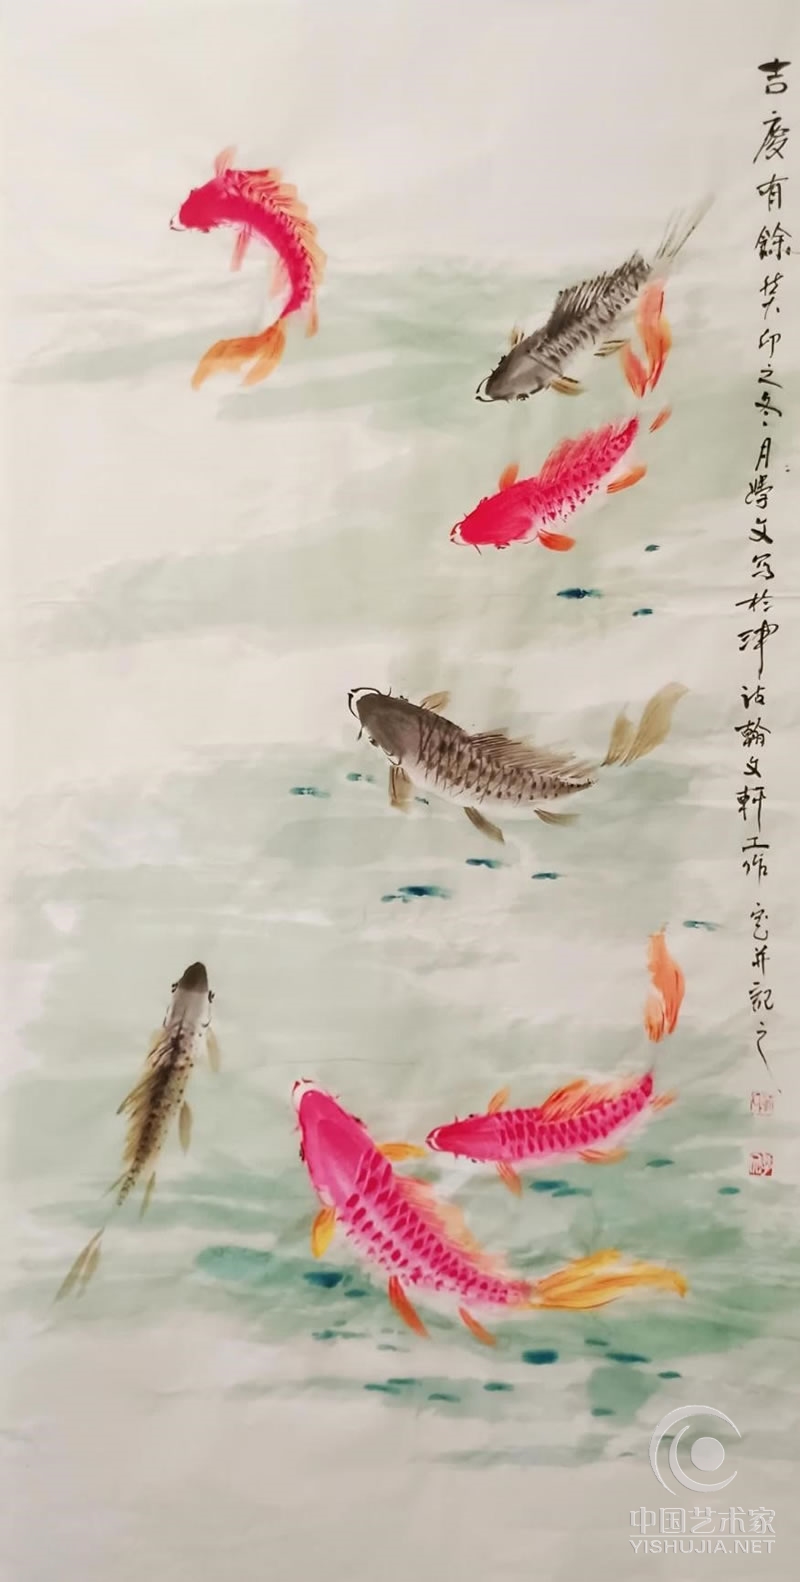 吉慶有餘癸卯之冬月學文写於津沽翰文軒工作室并記之
中国艺术家
YISHUJIA.NET